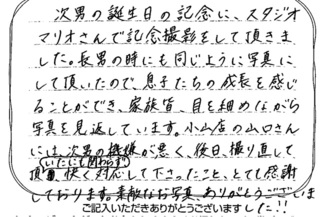 次男の誕生日の記念に、スタジオ
マリオさんで記念撮影をして頂きま
した。長男の時にも同じように写真に
して頂いたので、息子たちの成長を感じ
ることができ、家族皆、目を細めながら
写真を見返しています。小山店の山口さん
には、次男の機嫌が悪く、後日、撮り直して
いたにも関わらず
頂電、快く対応して下さったこと、とても感謝
しております。素敵なお写真、ありがとうございま
した!!
ご記入いただきありがとうございます